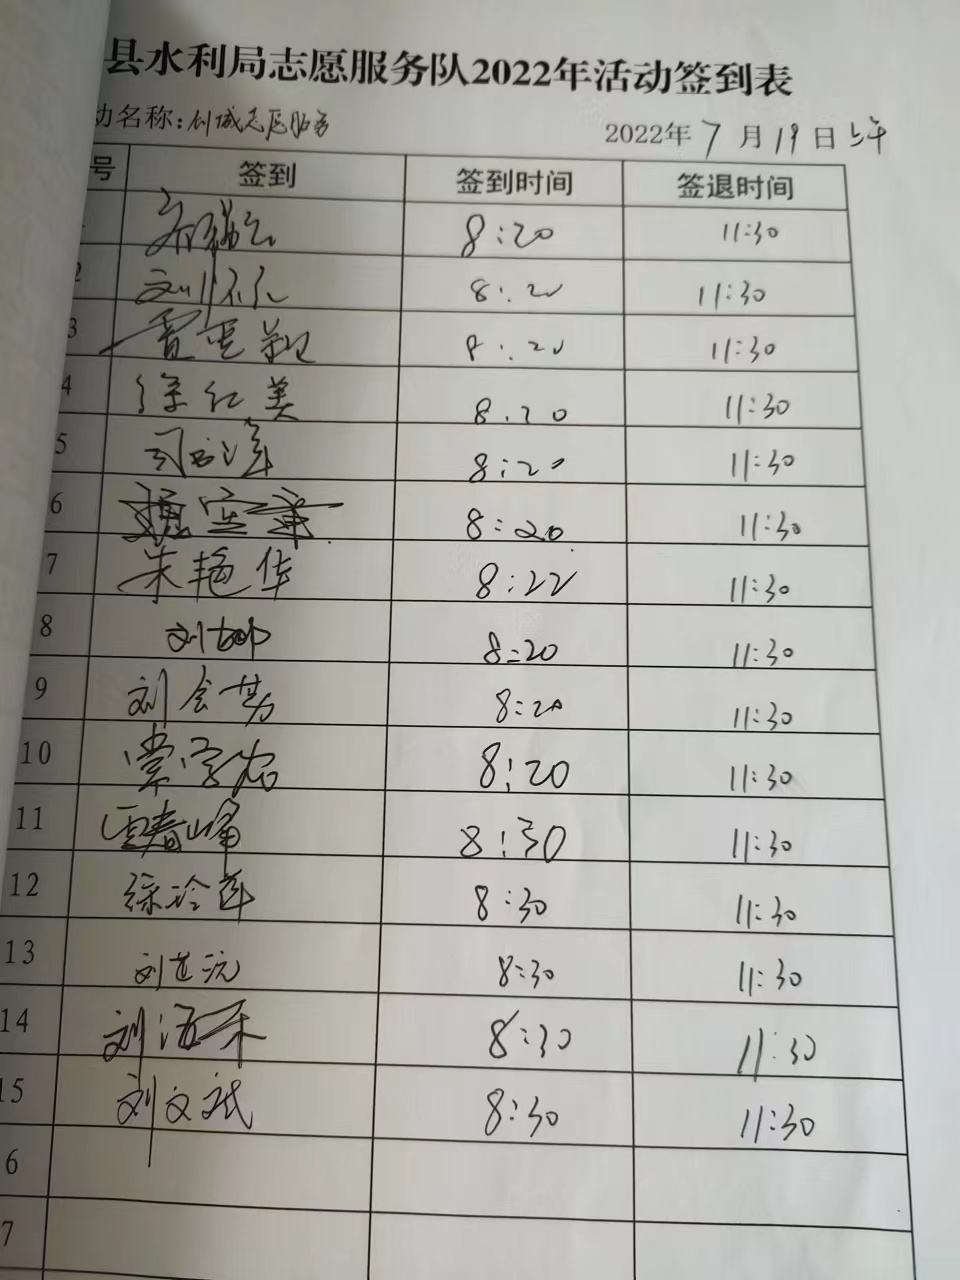 县水利局志愿服务队2022年活动签到表
动名称:创城志愿服务 2022年7月19日上午
号 签到 签到时间 签退时间
8:20 11:30
2 刘 8:20 11:30
3 8:20 11:30
4 徐红美 8:20 11:30
5 8:20 11:30
6 8:20 11:30
7 朱艳华 8:22 11:30
8 刘 8:20 11:30
9 刘会芳 8:20 11:30
10 常 8:20 11:30
11 贾春峰 8:30 11:30
12 徐 8:30 11:30
13 刘 8:30 11:30
14 刘 8:30 11:30
15 刘文斌 8:30 11:30
6
7